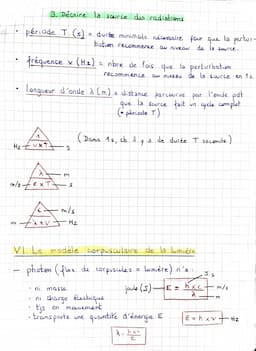 3. Décrire la source des radiations
• période T (s) = durée minimale nécessaire pour que la pertur-
bation recommence au niveau de la source.
• fréquence ν (Hz) = nbre de fois que la perturbation
recommence au niveau de la source en 1s.
• longueur d'onde λ (m) = distance parcourue par l'onde pdt
que la source fait un cycle complet
(= période T)
1
Hz ν x T s
(Dans 1s, cb λ y a de durée T seconde)
λ m
m/s c x T s
c m/s
m λ x ν Hz
VI Le modèle corpusculaire de la lumière
— photon (flux de corpuscules = lumière) n'a :
• ni masse
• ni charge électrique
• tjs en mouvement
• transporte une quantité d'énergie E
J.s
joule (J) E = h x c / λ m/s
m
E = h x ν Hz